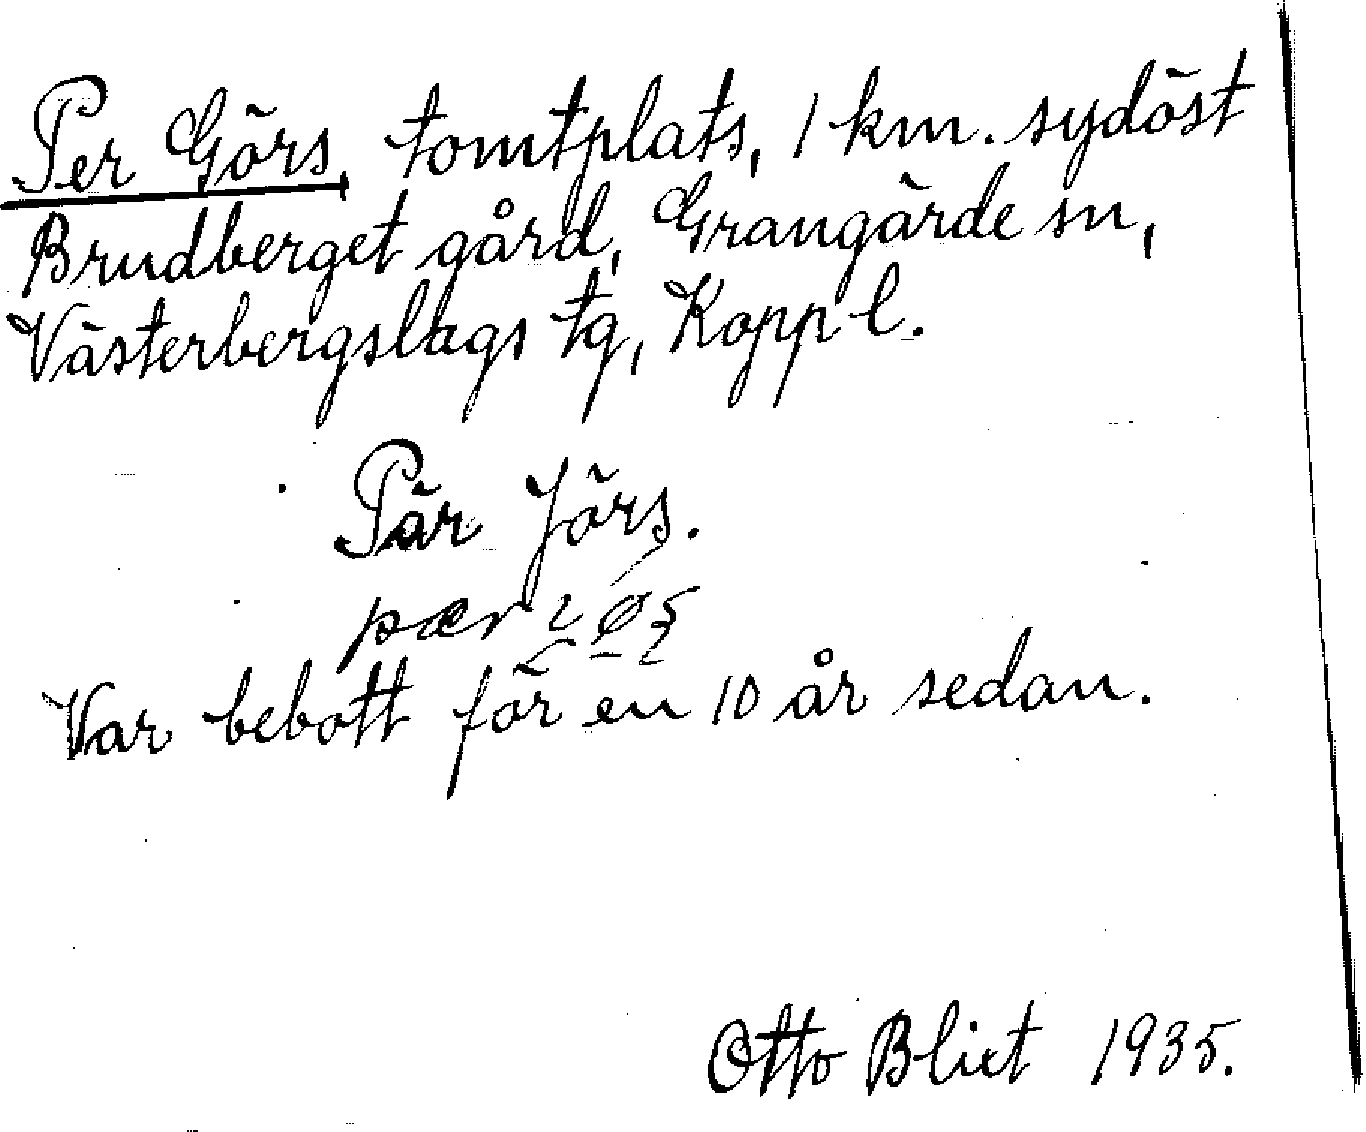 Per Görs, tomtplats, 1 km. sydöst
Brudberget gård, Grangärde sn,
Västerbergslags tg, Kopp l.
Pär Jörs.
pær
Var bebott för en 10 år sedan.
Otto Blixt 1935.